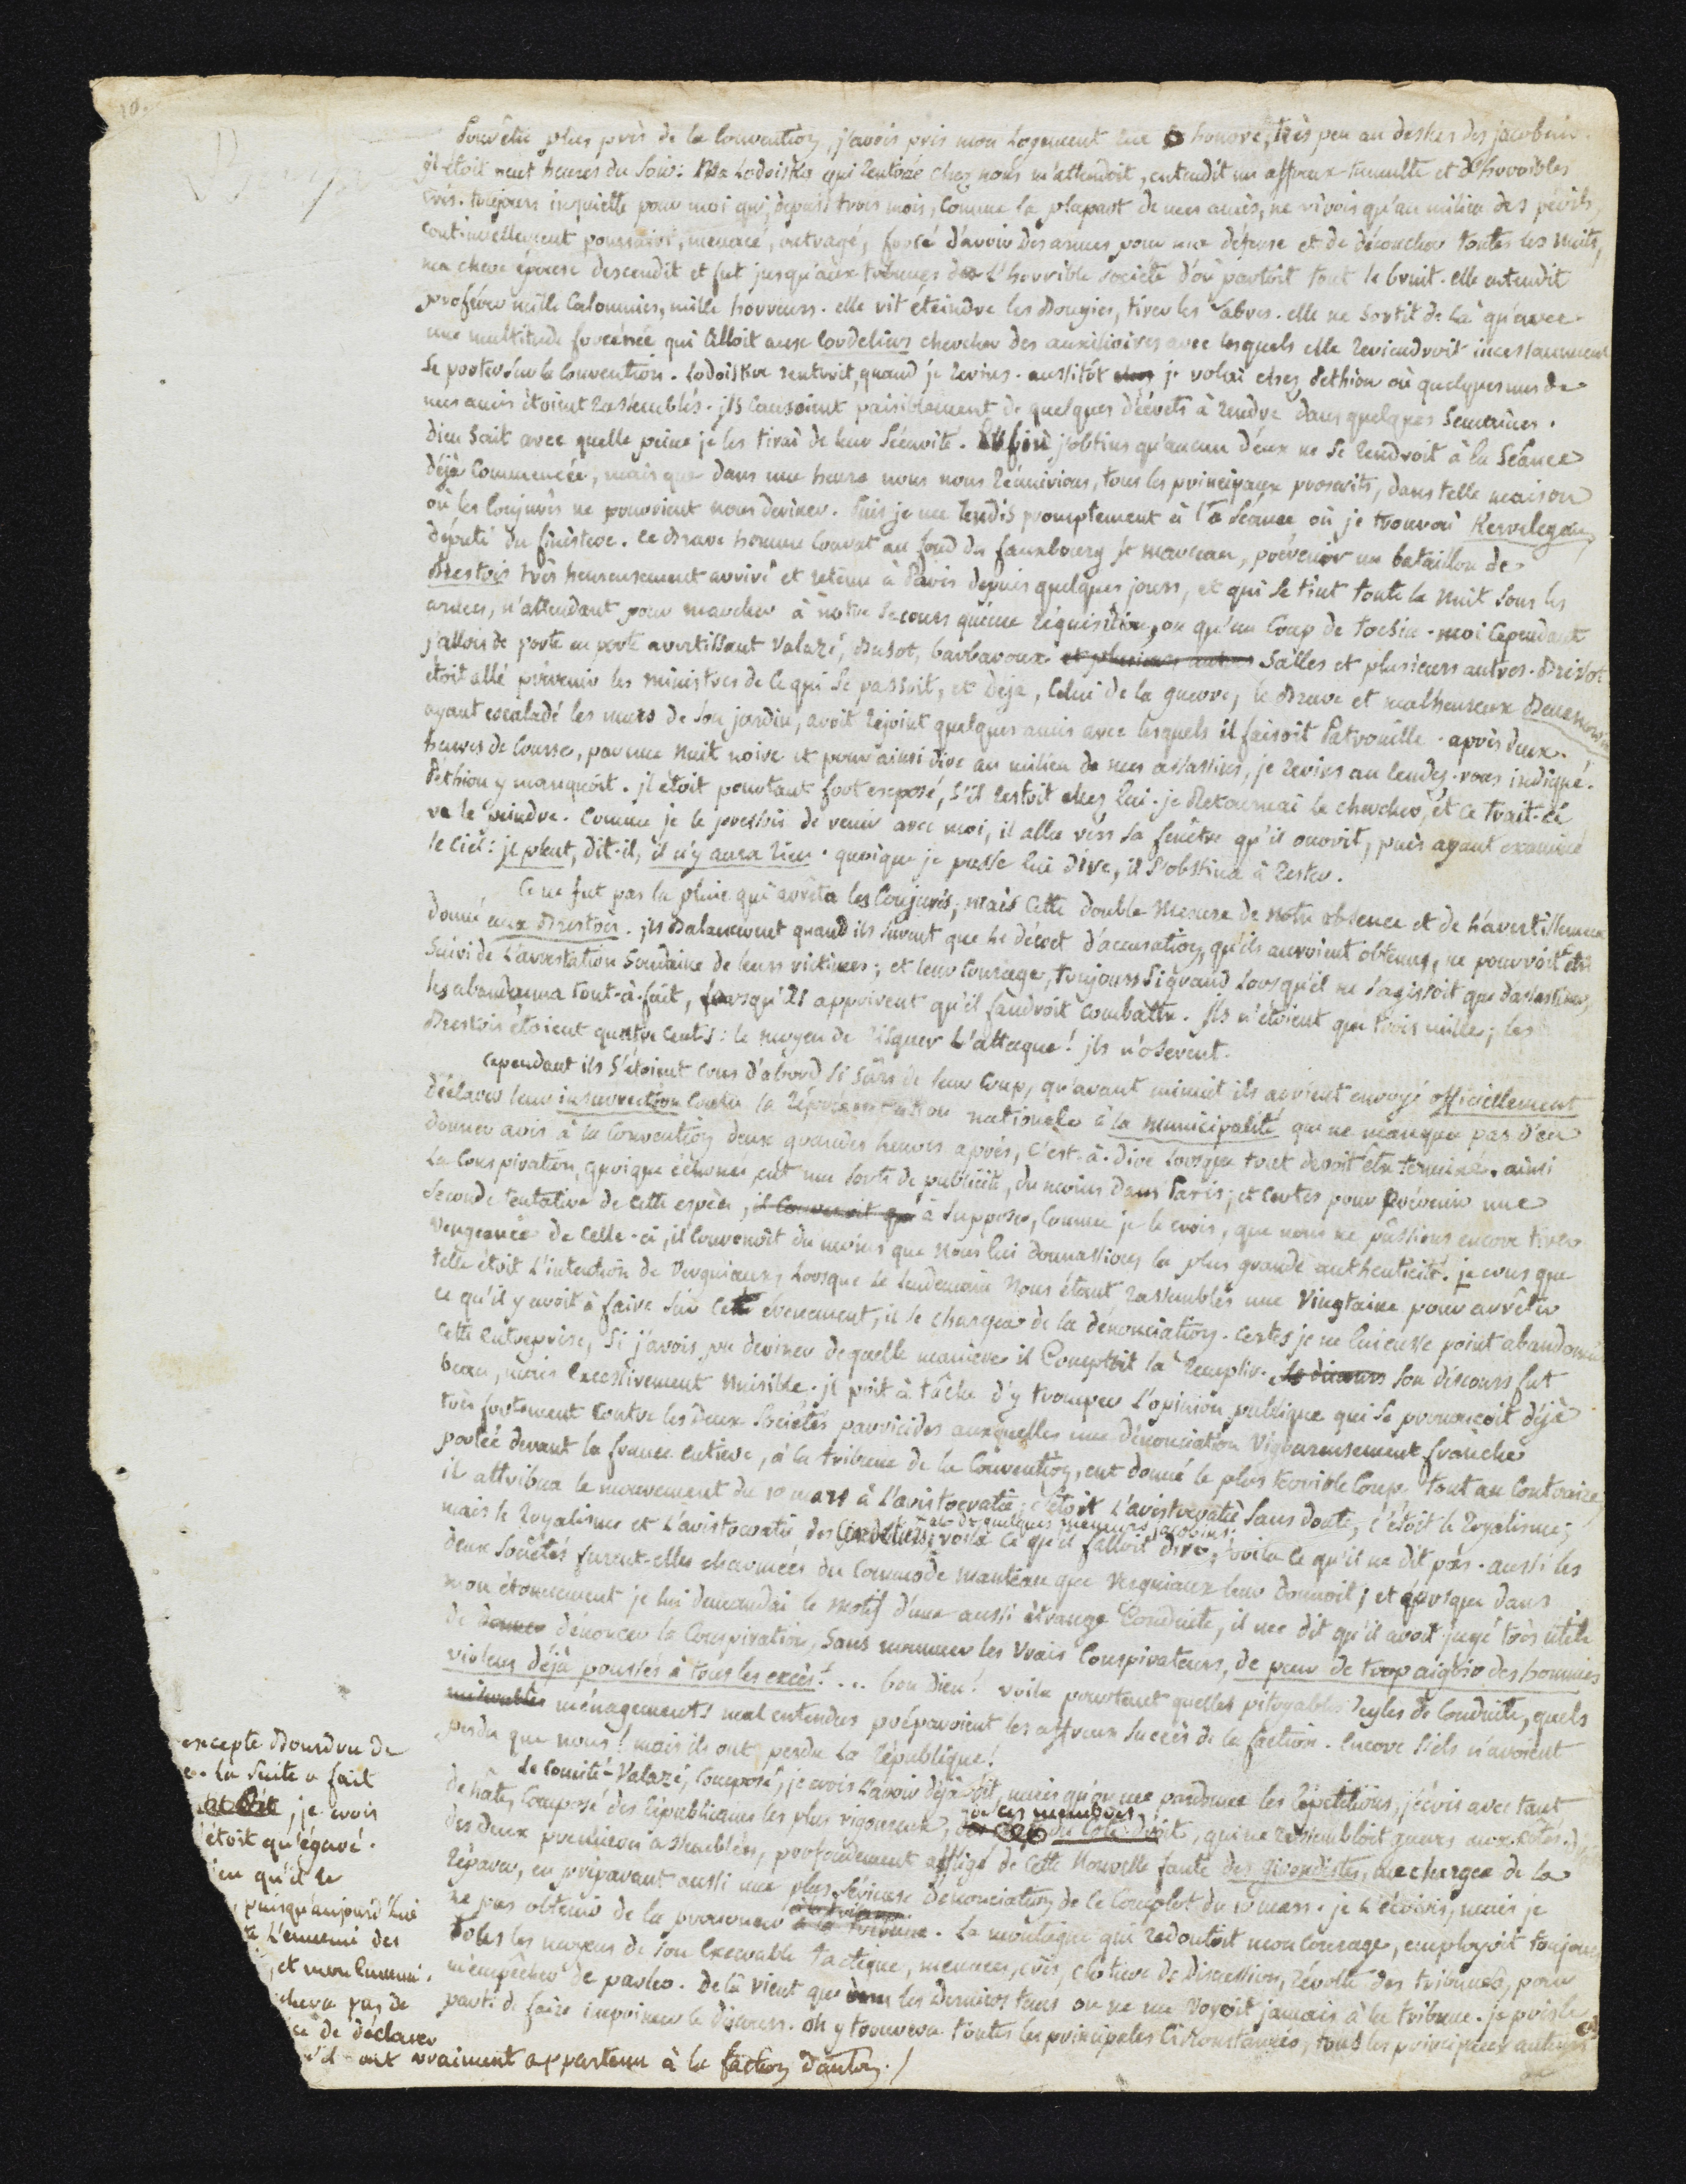 10.
Pour être plus près de la Convention, j'avois pris mon logement rue St honoré, très peu au dessus des jacobins.
il étoit neuf heures du soir: Ma Lodoiska qui rentrée chez nous m'attendoit, entendit un affreux tumulte et d'horribles
cris. toujours inquiette pour moi qui, depuis trois mois, comme la plupart de mes amis, ne vivois qu'au milieu des périls,
continuellement poursuivi, menacé, outragé, forcé d'avoir des armes pour ma défense et de découcher toutes les nuits,
ma chere épouse descendit et fut jusqu'aux tribunes de L'horrible société d'où partoit tout le bruit. elle entendit
proférer mille calomnies, mille horreurs. elle vit éteindre les Bougies, tirer les sabres. elle ne sortit de là qu'avec
une multitude forcénée qui alloit aux Cordeliers chercher des auxiliaires avec lesquels elle reviendroit incessamment
se porter sur la Convention. Lodoiska rentroit, quand je revins. aussitôt je volai chez Pethion où quelques uns de
mes amis étoient rassemblés. ils causoient paisiblement de quelques décrets à rendre dans quelques semaines.
dieu sait avec quelle peine je les tirai de leur sécurité. Enfin j'obtins qu'aucun d'eux ne se rendroit à la séance
déjà commencée, mais que dans une heure nous nous réunirions, tous les principaux proscrits, dans telle maison
où les Conjurés ne pouvoient nous deviner. Puis je me rendis promptement à la séance où je trouvai Kervelegan,
député du finistere. ce Brave homme courut au fond du fauxbourg St marceau, prévenir un bataillon de
Brestois très heureusement arrivé et retenu à Paris depuis quelques jours, et qui se tint toute la nuit sous les
armes, n'attendant pour marcher à notre secours qu'une réquisition, ou qu'un coup de tocsin. moi cependant
j'allois de porte en porte avertissant Valazé, Buzot, barbaroux et plusieurs autres Salles et plusieurs autres. Brissot
étoit allé prévenir les ministres de ce qui se passoit, et déjà, celui de la guerre, le Brave et malheureux Beurnonville
ayant escaladé les murs de son jardin, avoit rejoint quelques amis avec lesquels il faisoit Patrouille. après deux
heures de course, par une nuit noire et pour ainsi dire au milieu de mes assassins, je revins au rendez-vous indiqué.
Pethion y manquoit. il étoit pourtant fort exposé, s'il restoit chez lui. je Retournai le chercher, et ce trait-là
va le peindre. Comme je le pressois de venir avec moi, il alla vers sa fenêtre qu'il ouvrit, puis ayant examiné
le ciel: il pleut, dit-il, il n'y aura rien. quoique je pusse lui dire, il s'obstina à rester.
Ce ne fut pas la pluie qui arrêta les Conjurés, mais cette double mesure de notre absence et de l'avertissement
donné aux Brestois. ils Balancerent quand ils surent que le décret d'accusation, qu'ils auroient obtenu, ne pourroit être
suivi de L'arrestation soudaine de leurs victimes; et leur courage, toujours si grand lorsqu'il ne s'agissoit que d'assassiner,
les abandonna tout-à-fait, lorsqu'ils apprirent qu'il faudroit combattre. Ils n'étoient que trois mille; les
Brestois étoient quatre cents: le moyen de risquer L'attaque! ils n'oserent.
cependant ils s'étoient crus d'abord si sûrs de leur coup, qu'avant minuit ils avoient envoyé officiellement
déclarer leur insurrection contre la représentation nationale à la municipalité qui ne manqua pas d'en
donner avis à la Convention deux grandes heures après, c'est-à-dire lorsque tout devoit être terminé. ainsi
la conspiration, quoique échouée eut une sorte de publicité, du moins dans Paris; et certes pour prévenir une
seconde tentative de cette espèce, il convenoit que à supposer, comme je le crois, que nous ne pussions encore tirer
vengeance de celle-ci, il convenoit du moins que nous lui donnassions la plus grande authenticité. je crus que
telle étoit L'intention de Vergniaux, lorsque le lendemain nous étant rassemblés une vingtaine pour arrêter
ce qu'il y avoit à faire sur cet évenement, il se chargea de la dénonciation. certes je ne lui eusse point abandonné
cette entreprise, si j'avois pu deviner de quelle maniere il comptoit la remplir. le discours son discours fut
beau, mais excessivement nuisible. il prit à tâche d'y tromper L'opinion publique qui se prononçoit déjà
très fortement contre les deux sociétés parricides auxquelles une dénonciation vigoureusement franche
portée devant la france entiere, à la tribune de la Convention, eut donné le plus terrible coup. tout au contraire,
il attribua le mouvement du 10 mars à L'aristocratie; c'étoit L'aristocratie sans doute, c'étoit le royalisme;
mais le royalisme et L'aristocratie des Cordeliers et de quelques meneurs jacobins; voilà ce qu'il falloit dire, voilà ce qu'il ne dit pas. aussi les
deux sociétés furent-elles charmées du commode manteau que Vergniaux leur donnoit; et lorsque dans
mon étonnement je lui demandai le motif d'une aussi étrange conduite, il me dit qu'il avoit jugé très utile
de donner dénoncer la Conspiration, sans nommer les vrais Conspirateurs, de peur de trop aigrir des hommes
violens déjà poussés à tous les excès!... bon dieu! voilà pourtant quelles pitoyables regles de conduite, quels
misérables ménagements mal entendus préparoient les affreux succès de la faction. Encore s'ils n'avoient
perdu que nous! mais ils ont perdu la République!
Le comité-Valazé, composé, je crois l'avoir déjà dit, mais qu'on me pardonne les répétitions, j'écris avec tant
de hâte, composé des républicains les plus vigoureux, de ces membres du côté-droit, qui ne ressembloit guere aux côtés-droits
des deux premieres assemblées, profondement affligé de cette nouvelle faute des girondistes, me chargea de la
réparer, en préparant aussi une plus sérieuse Dénonciation de ce Complot du 10 mars. je L'écrivis, mais je
ne pus obtenir de la prononcer à la tribune. La montagne qui redoutoit mon courage, employoit toujours
tous les moyens de son Execrable tactique, menaces, cris, clôture de Discussion, révolte des tribunes, pour
m'empêcher de parler. De là vient que dans les derniers tems on ne me voyoit jamais à la tribune. je pris le
parti de faire imprimer le discours. On y trouvera toutes les principales circonstances, tous les principaux auteurs
excepté Bourdon de
la suite a fait
, je crois
étoit qu'égaré.
qu'il le
, puisqu'aujourd'hui
L'ennemi des
, et mon ennemi.
pas de
de déclarer
ont vraiment appartenu à la faction d'anton./